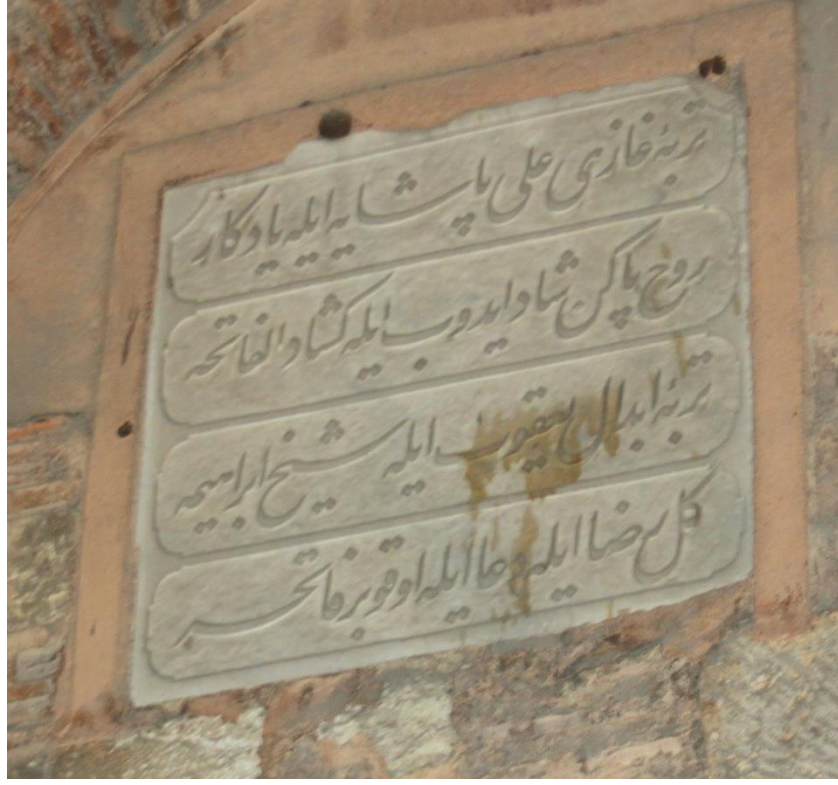 تربۀ غازی علی پاشایه ایله یادکار
روح پاکن شاد ایدوب ایله کشاد الفاتحه
تربۀ ابدال یعقوب ایله شیخ ابراهیمه
کل رضا ایله دعا ایله اوقو بر فاتحه